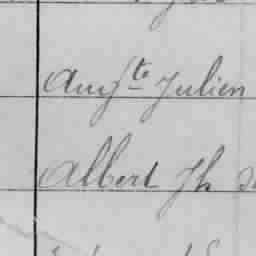 Aug^te Julien
Albert Jh